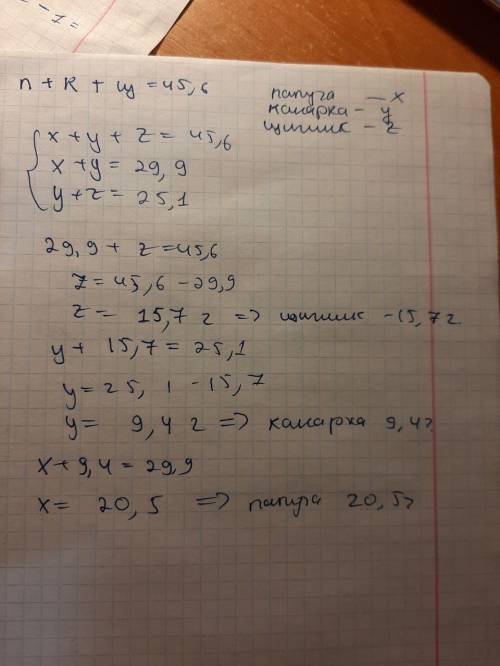 п + к + щ = 45,6
папуга — x
канарка - y
щиглик - z
x + y + z = 45,6
x + y = 29,9
y + z = 25,1
29,9 + z = 45,6
z = 45,6 - 29,9
z = 15,7 г => щиглик - 15,7 г
y + 15,7 = 25,1
y = 25,1 - 15,7
y = 9,4 г => канарка 9,4 г
x + 9,4 = 29,9
x = 20,5 => папуга 20,5 г